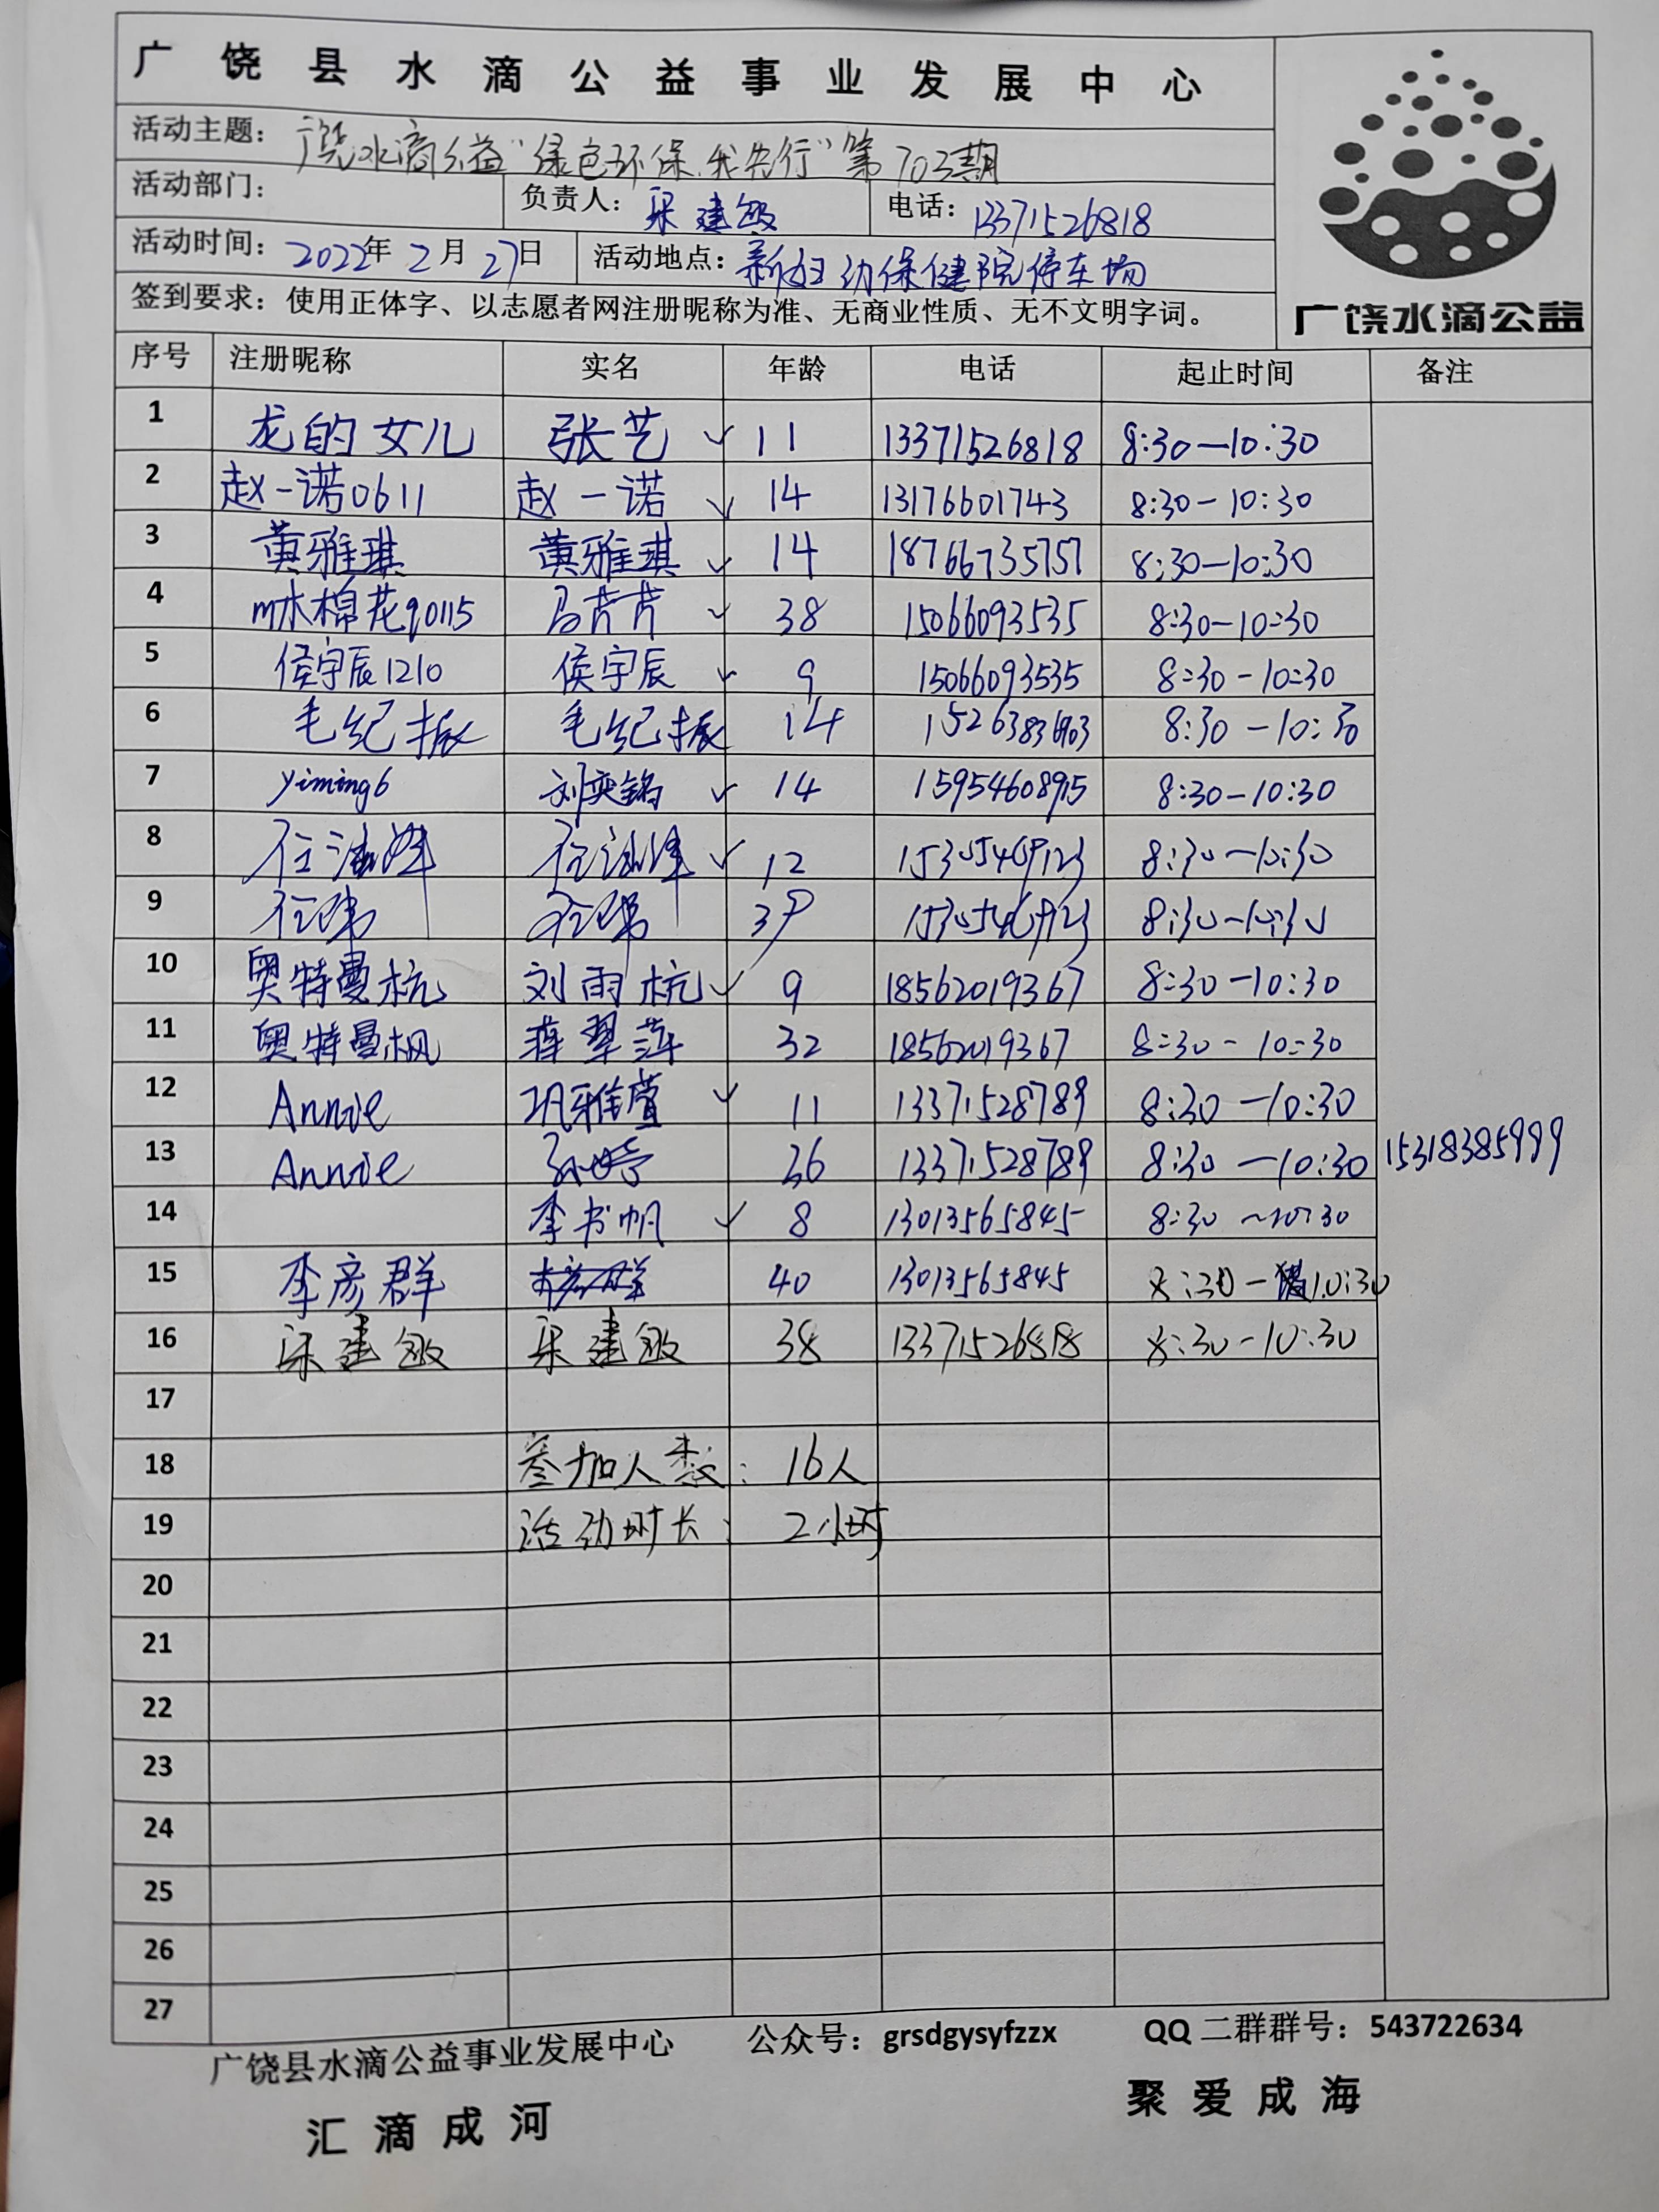 广饶县水滴公益事业发展中心
活动主题：广饶水滴公益“绿色环保,我先行”第703期
活动部门： 负责人：梁建敏 电话：13371526818
活动时间：2022年2月27日 活动地点：新妇幼保健院停车场
签到要求：使用正体字、以志愿者网注册昵称为准、无商业性质、无不文明字词。
广饶水滴公益
序号 注册昵称 实名 年龄 电话 起止时间 备注
1 龙的女儿 张艺 ✓ 11 13371526818 8:30—10:30
2 赵一诺0611 赵一诺 ✓ 14 13176601743 8:30-10:30
3 黄雅琪 黄雅琪 ✓ 14 18766735757 8:30—10:30
4 m木棉花90115 马芹芹 ✓ 38 15066093535 8:30-10:30
5 侯宇辰1210 侯宇辰 ✓ 9 15066093535 8:30-10:30
6 毛纪振 毛纪振 14 15263836903 8:30-10:30
7 yiming6 刘奕铭 ✓ 14 15954608915 8:30-10:30
8 ✓ 12 8:30-10:30
9 39 8:30-10:30
10 奥特曼杭 刘雨杭 ✓ 9 18562019367 8:30-10:30
11 奥特曼枫 蒋翠萍 32 18562019367 8:30-10:30
12 Annie 巩雅萱 ✓ 11 13371528789 8:30-10:30
13 Annie 孙婷 36 13371528789 8:30-10:30 15318385999
14 李书帆 ✓ 8 13013565845 8:30~10:30
15 李彦群 40 13013565845 8:30-10:30
16 梁建敏 梁建敏 38 13371526818 8:30-10:30
17
18 参加人数: 16人
19 活动时长: 2小时
20
21
22
23
24
25
26
27
广饶县水滴公益事业发展中心 公众号：grsdgysyfzzx QQ二群群号：543722634
汇滴成河 聚爱成海